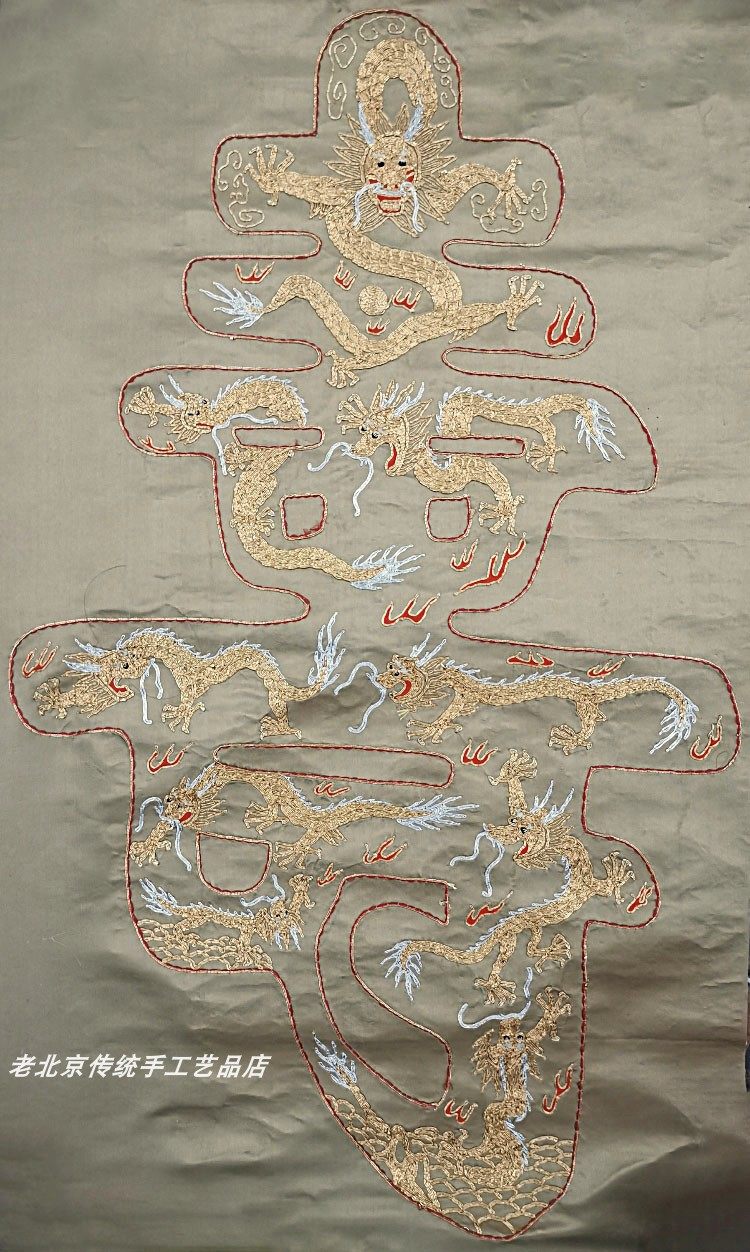 壽
老北京传统手工艺品店